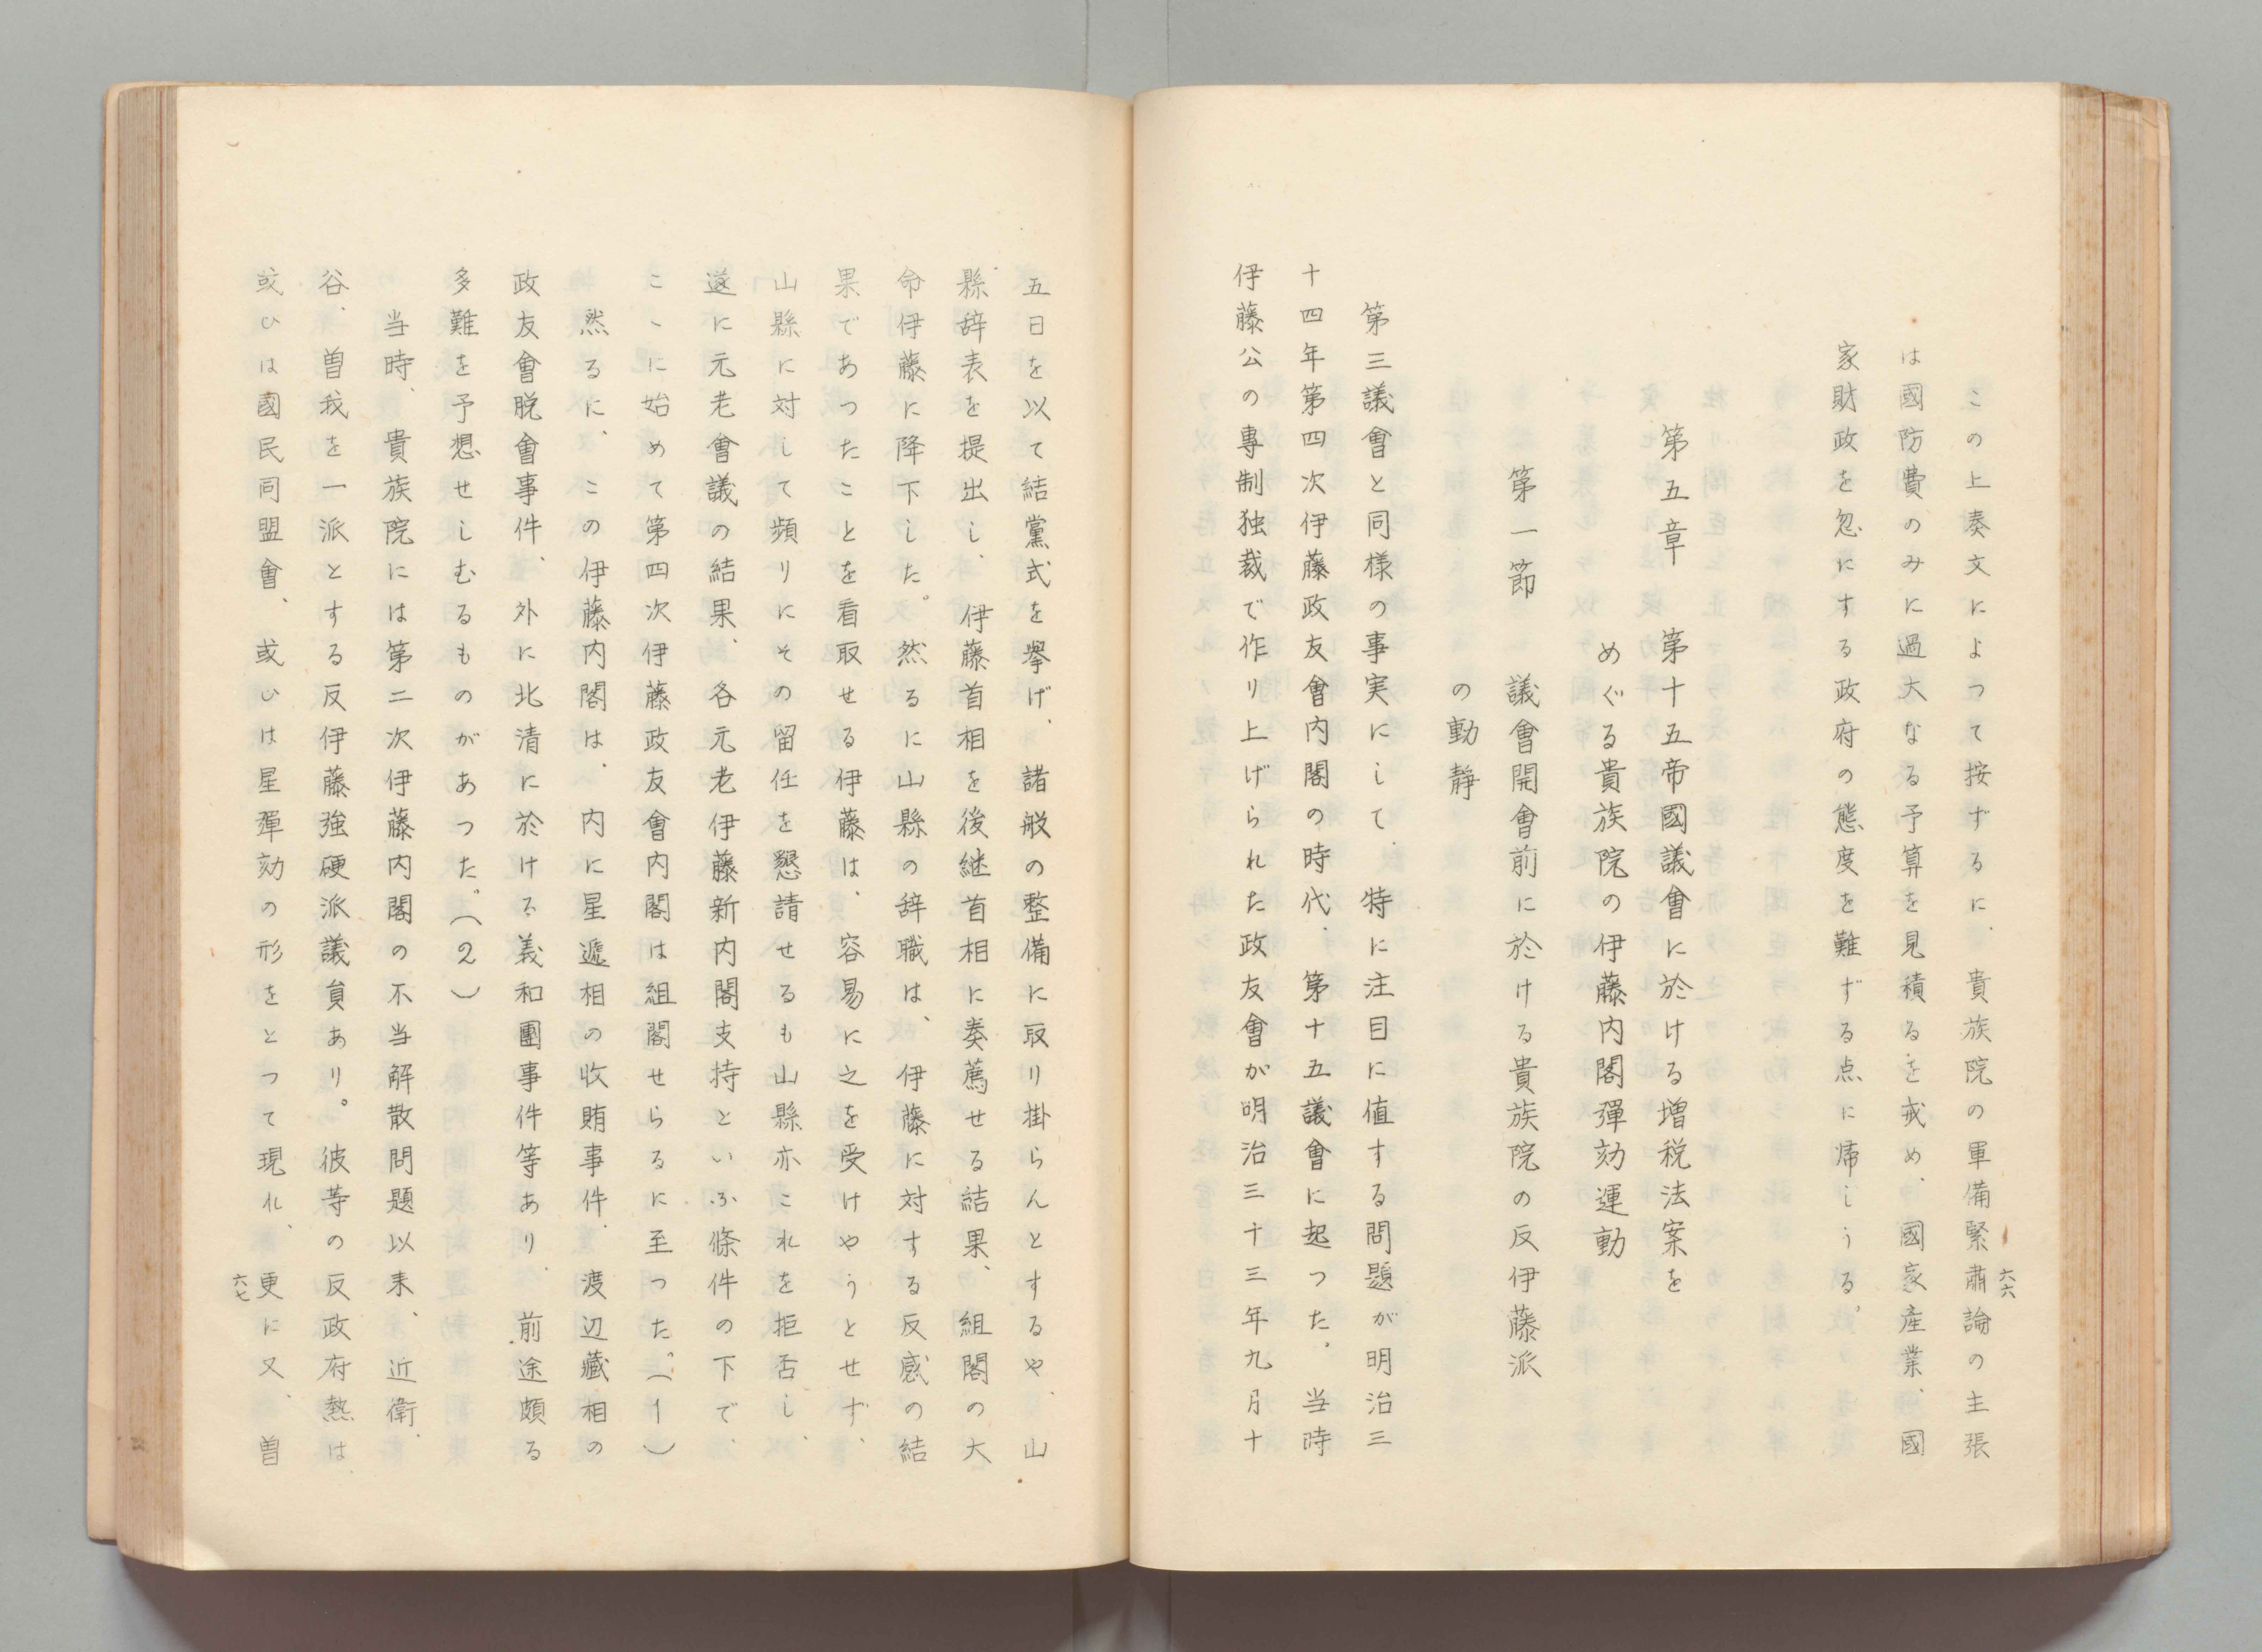 六六
この上奏文によつて按ずるに、貴族院の軍備緊肅論の主張
は國防費のみに過大なる予算を見積るを戒め、國家産業、國
家財政を忽にする政府の態度を難ずる点に帰しうる。
第五章　第十五帝國議會に於ける増税法案を
めぐる貴族院の伊藤内閣彈劾運動
第一節　議會開會前に於ける貴族院の反伊藤派
の動靜
第三議會と同様の事実にして、特に注目に値する問題が明治三
十四年第四次伊藤政友會内閣の時代、第十五議會に起つた。当時
伊藤公の專制独裁で作り上げられた政友會が明治三十三年九月十
五日を以て結黨式を擧げ、諸般の整備に取り掛らんとするや、山
縣辞表を提出し、伊藤首相を後継首相に奏薦せる結果、組閣の大
命伊藤に降下した。然るに山縣の辞職は、伊藤に対する反感の結
果であつたことを看取せる伊藤は、容易に之を受けやうとせず、
山縣に対して頻りにその留任を懇請せるも山縣亦これを拒否し、
遂に元老會議の結果、各元老伊藤新内閣支持といふ條件の下で、
こゝに始めて第四次伊藤政友會内閣は組閣せらるに至つた。(1)
然るに、この伊藤内閣は、内に星遞相の收賄事件、渡辺藏相の
政友會脱會事件、外に北清に於ける義和團事件等あり、前途頗る
多難を予想せしむるものがあつた。(2)
当時、貴族院には第二次伊藤内閣の不当解散問題以来、近衛、
谷、曽我を一派とする反伊藤強硬派議員あり。彼等の反政府熱は、
或ひは國民同盟會、或ひは星彈劾の形をとつて現れ、更に又、曽
六七